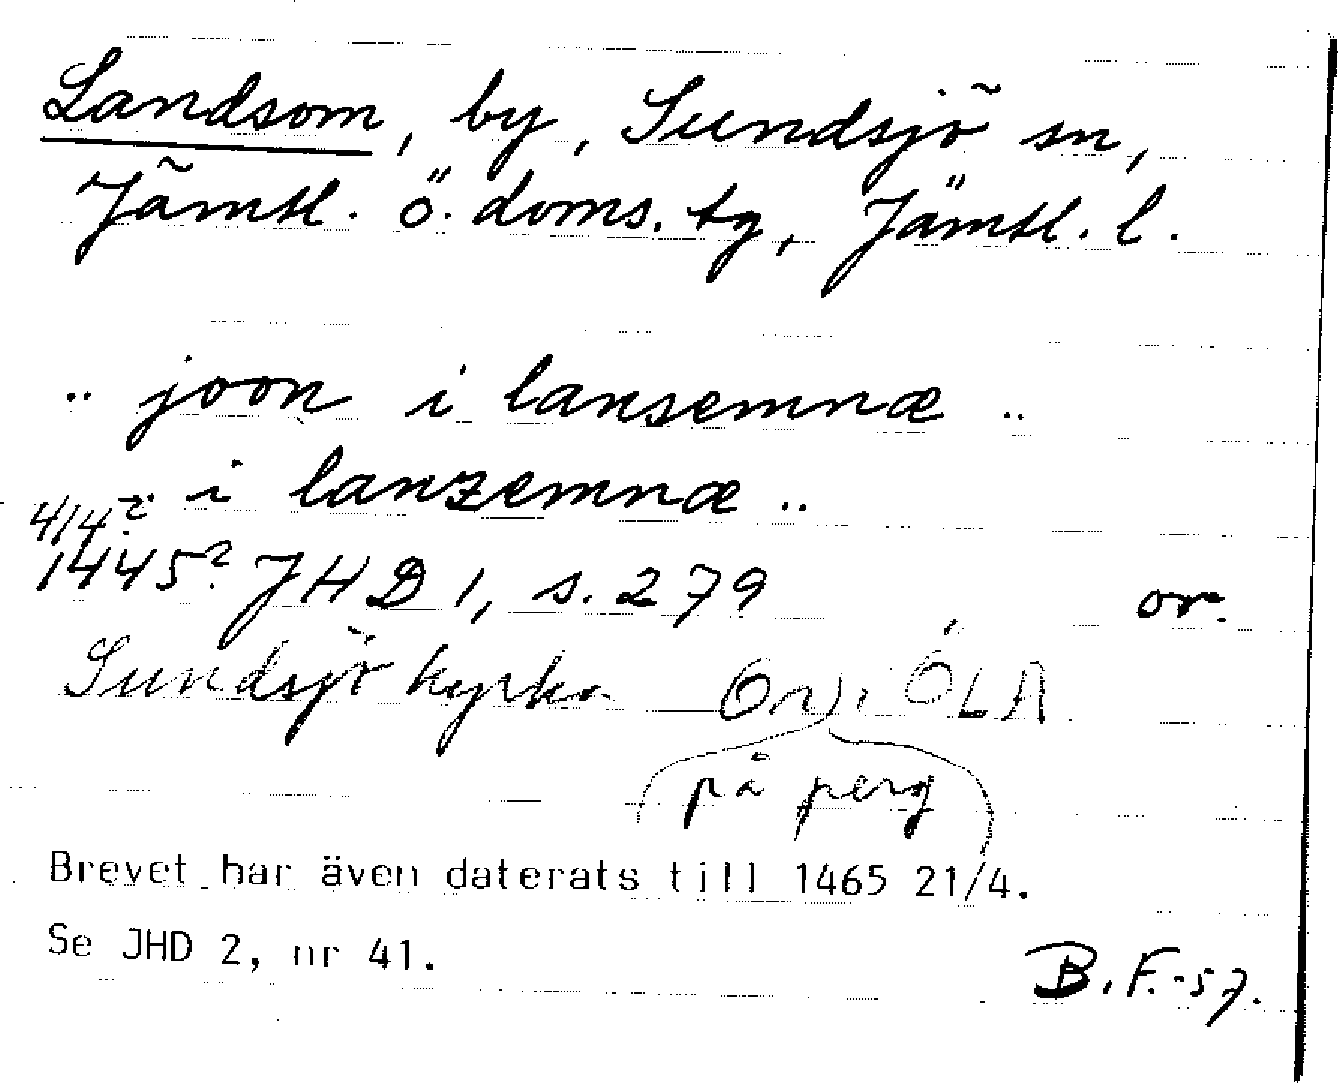 Landsom, by, Sundsjö sn,
Jämtl. ö. doms. tg, Jämtl. l.
.. joon i lansemnæ ..
.. i lanzemnæ ..
4/14?
1445? JHD 1, s. 279 or.
Sundsjö kyrka Or, i ÖLA
på perg
Brevet har även daterats till 1465 21/4.
Se JHD 2, nr 41.
B.F.-57.